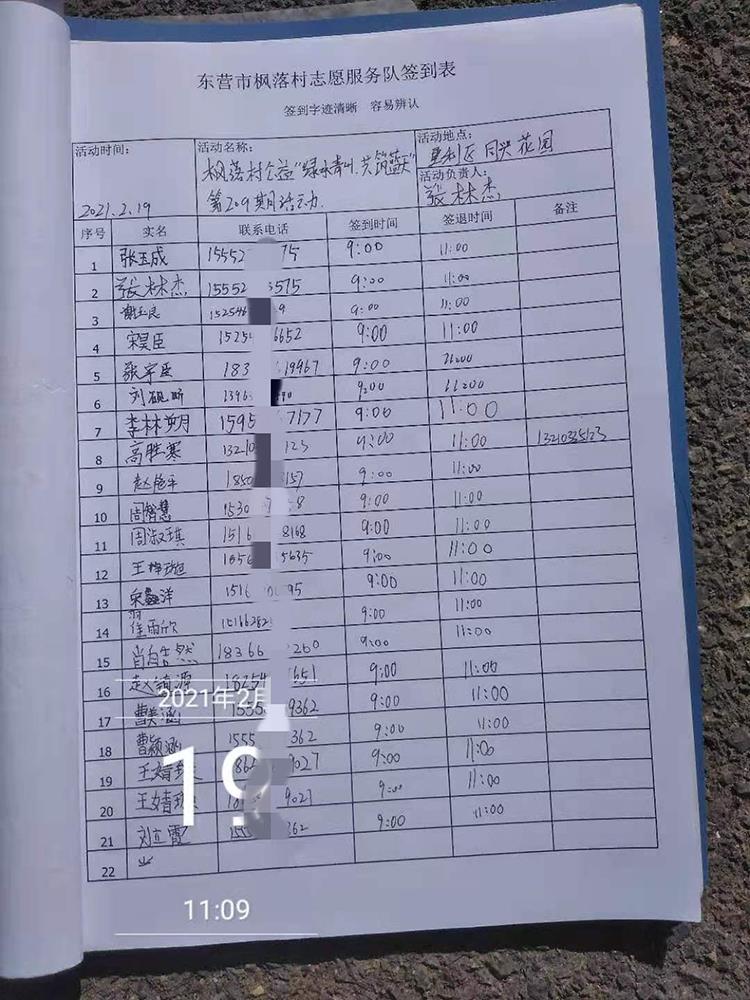 东营市枫落村志愿服务队签到表
签到字迹清晰 容易辨认
活动时间: 2021.2.19
活动名称: 枫落村公益"绿水青山,共筑蓝天"
第209期活动.
活动地点: 垦利区同兴花园
活动负责人: 张林杰
序号 实名 联系电话 签到时间 签退时间 备注
1 张玉成 15552 75 9:00 11:00
2 张林杰 15552 3575 9:00 11:00
3 152546 9 9:00 11:00
4 宋昊臣 1525 6652 9:00 11:00
5 张宇臣 183 19967 9:00
6 刘砚昕 1396 9:00 11:00
7 李林玥 1595 7177 9:00 11:00
8 高胜寒 13210 123 9:00 11:00
9 赵艳平 1850 157 9:00 11:00
10 周智慧 1530 8 9:00 11:00
11 周淑琪 1516 8168 9:00 11:00
12 王梓璇 5635 9:00 11:00
13 宋鑫洋 1516 95 9:00 11:00
14 雨欣 9:00 11:00
15 肖自然 18366 260 9:00 11:00
16 赵 源 18254 651 9:00 11:00
17 曹美涵 1555 9362 9:00 11:00
18 曹颖涵 1555 362 9:00 11:00
19 王婧 9027 9:00 11:00
20 王婧 9027 9:00 11:00
21 刘立霞 362 9:00 11:00
22
2021年2月
19
11:09